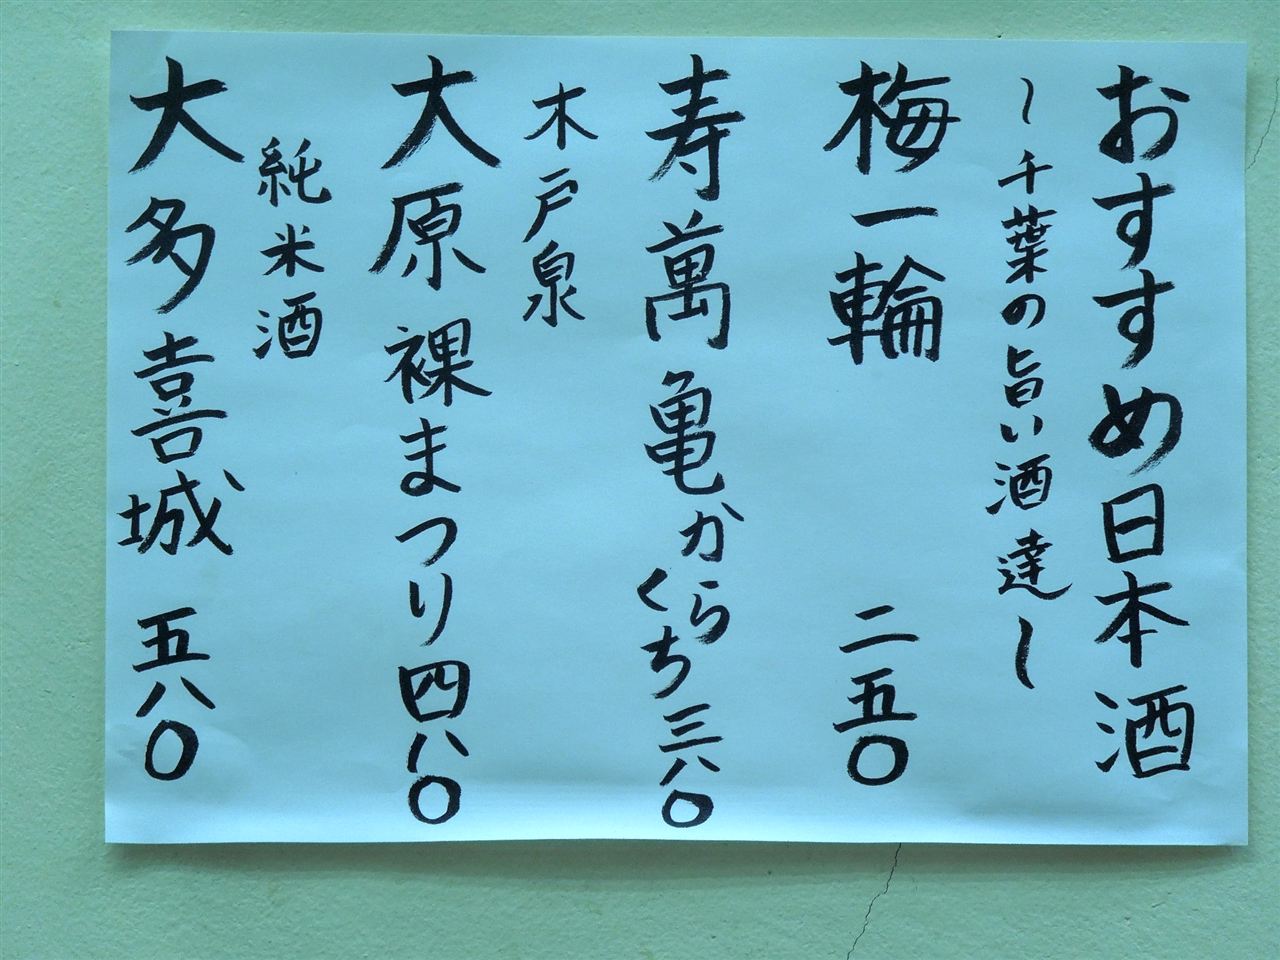 おすすめ日本酒
～千葉の旨い酒達～
梅一輪 二五〇
寿萬亀からくち 三八〇
木戸泉
大原裸まつり 四八〇
純米酒
大多喜城 五八〇